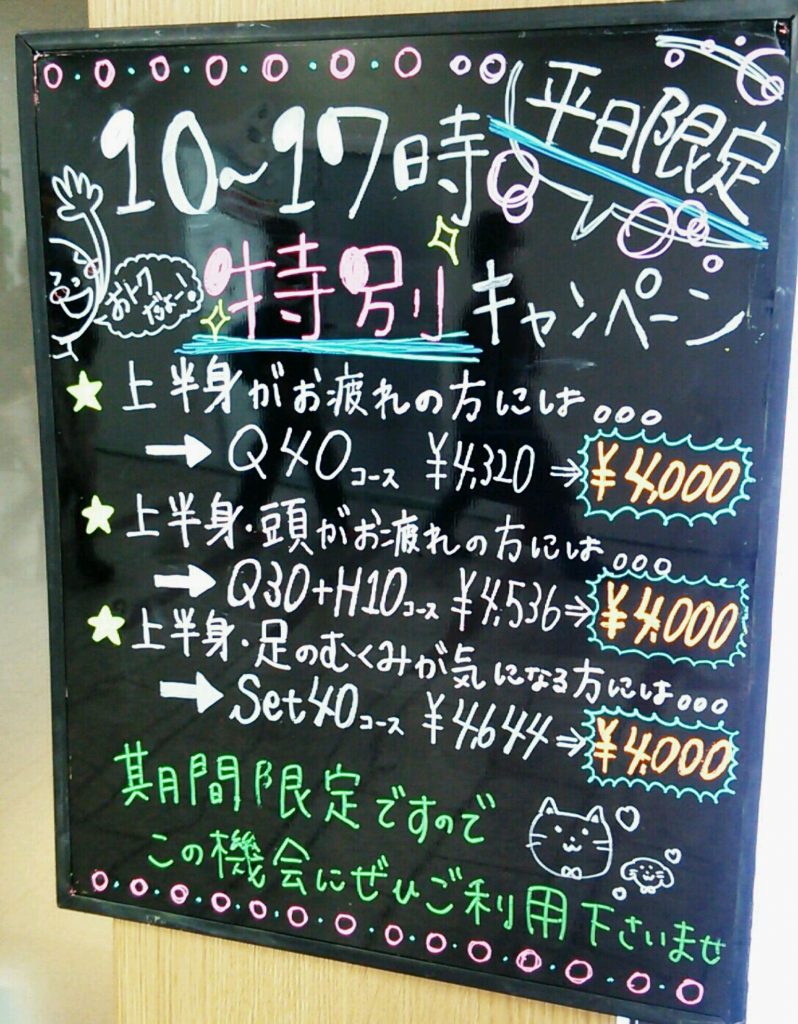 平日限定
10~17時
おトク
だよー!
特別キャンペーン
★上半身がお疲れの方には。。。
→Q40コース ¥4,320⇒¥4,000
★上半身・頭がお疲れの方には。。。
→Q30+H10コース ¥4,536⇒¥4,000
★上半身・足のむくみが気になる方には。。。
→Set40コース ¥4,644⇒¥4,000
期間限定ですので
この機会にぜひご利用下さいませ